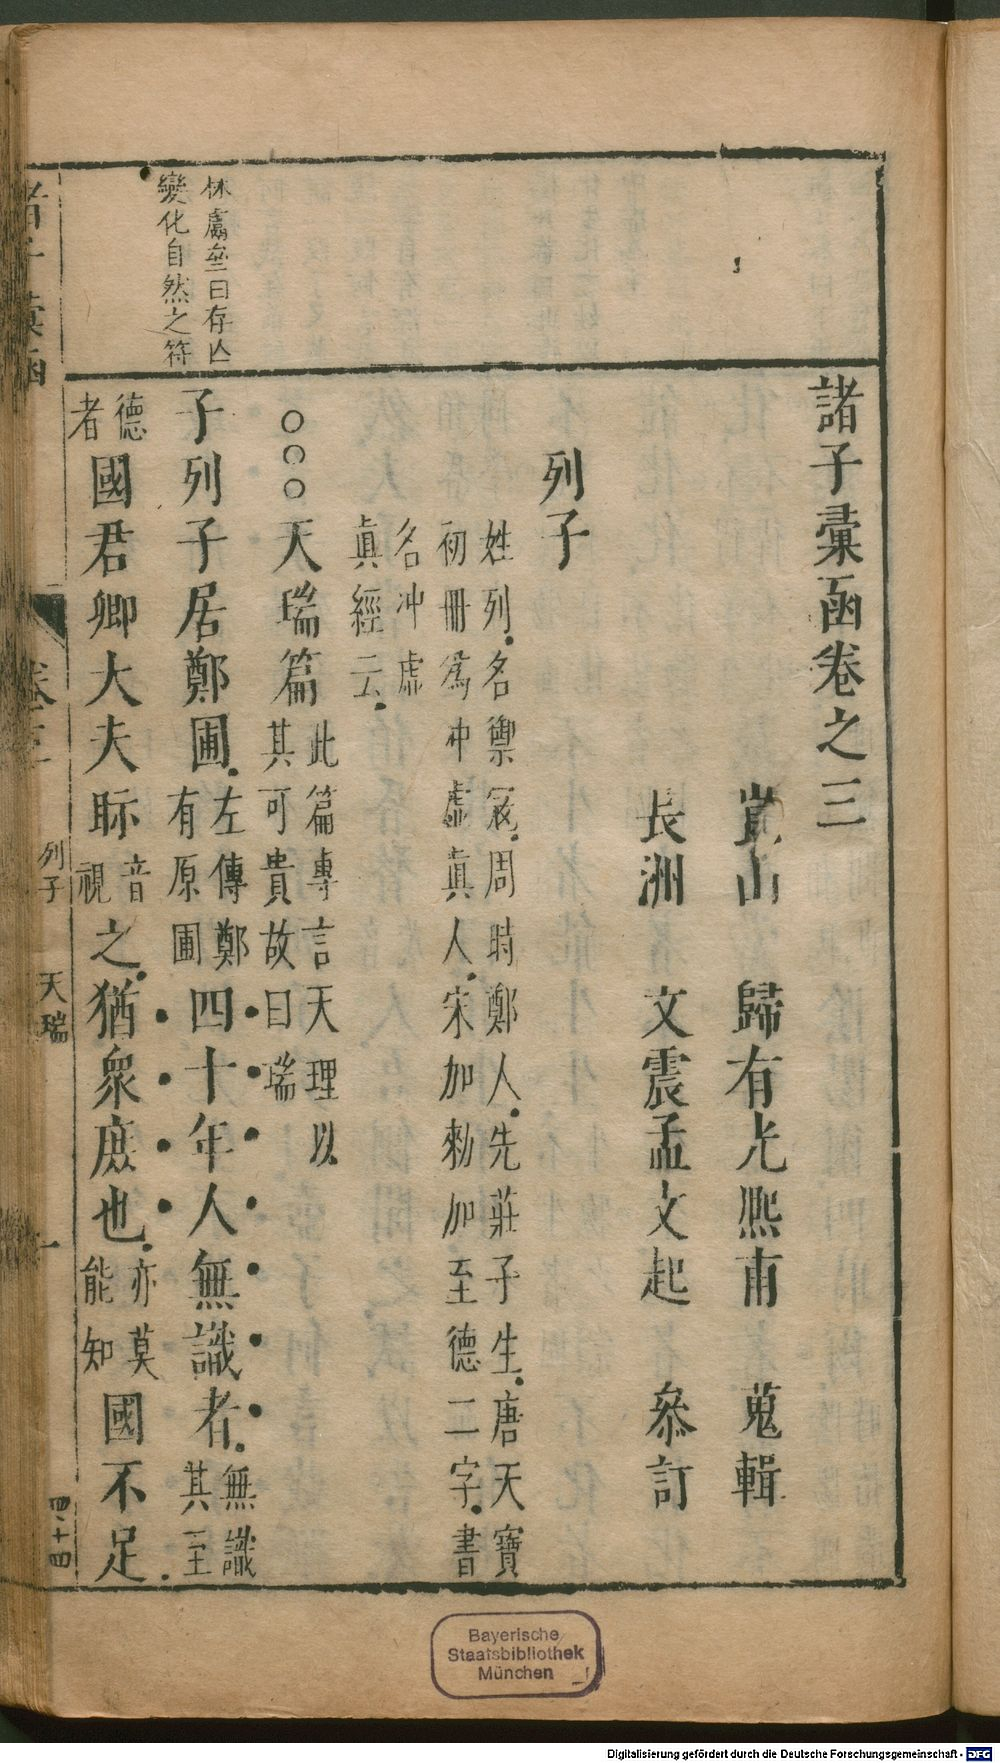 諸子彙函卷之三
崑山 歸有光熙甫 蒐輯
長洲 文震孟文起 叅訂
列子
姓列名禦寇周時鄭人先莊子生唐天寶
初冊為冲虛真人宋加勅加至德二字書
名冲虛
眞經云
○○○天瑞篇
此篇專言天理以
其可貴故曰瑞
子列子居鄭圃
左傳鄭
有原圃
四十年人無識者
無識
其至
德
者
國君卿大夫眎
音
視
之猶衆庶也
亦莫
能知
國不足
林鬳齋曰存亾
變化自然之符
諸子彙函
卷三
列子
天瑞
一
四十四
Bayerische
Staatsbibliothek
München
Digitalisierung gefördert durch die Deutsche Forschungsgemeinschaft - DFG